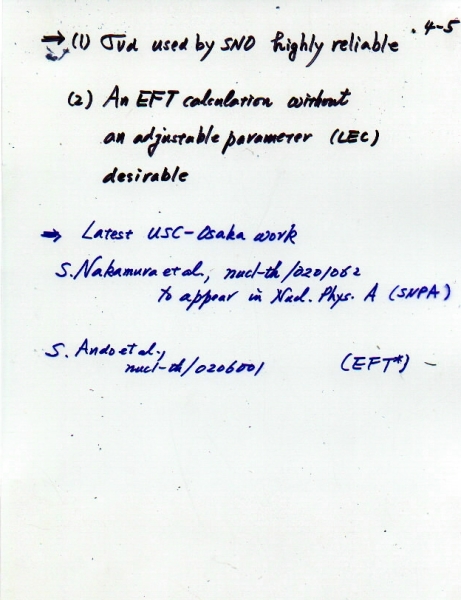 4-5
⇒ (1) σνd used by SNO highly reliable
(2) An EFT calculation without
an adjustable parameter (LEC)
desirable
⇒ Latest USC-Osaka work
S. Nakamura et al., nucl-th/0201062
to appear in Nucl. Phys. A (SNPA)
S. Ando et al.,
nucl-th/0206001 (EFT*)